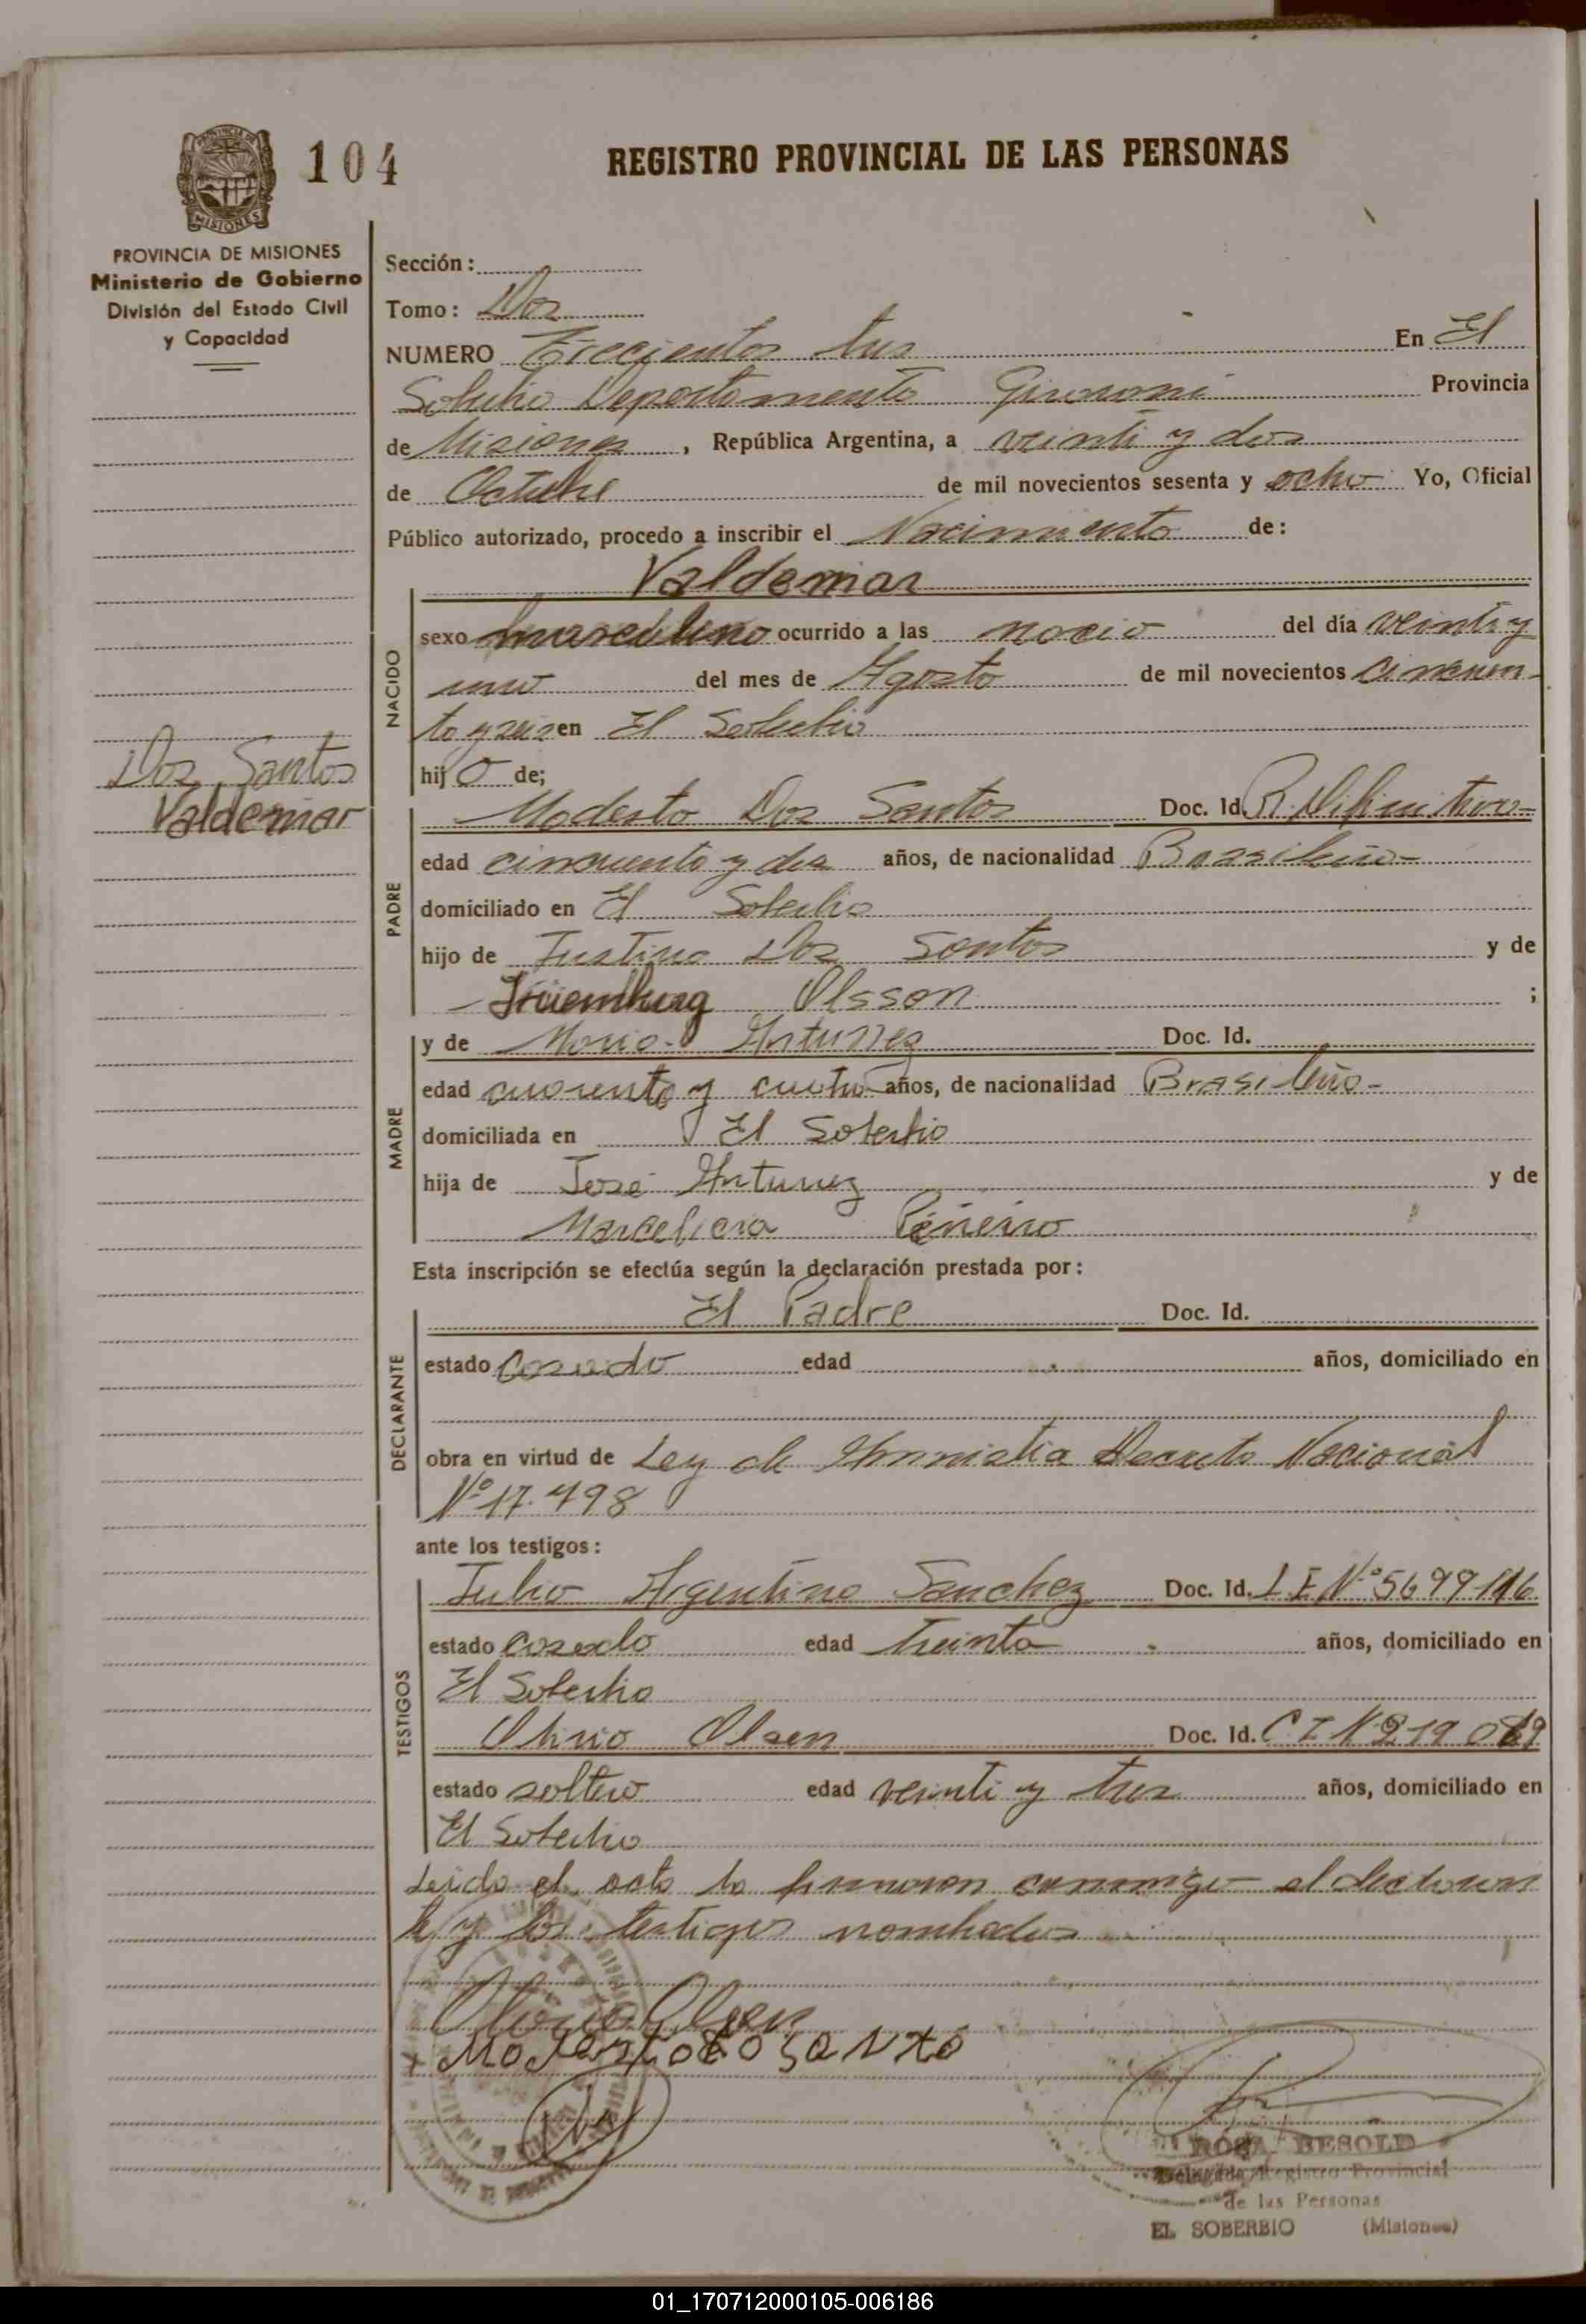 PROVINCIA DE MISIONES
104
REGISTRO PROVINCIAL DE LAS PERSONAS
PROVINCIA DE MISIONES
Ministerio de Gobierno
División del Estado Civil
y Capacidad
Dos Santos
Valdemar
Sección:
Tomo: Dos
NUMERO Treccientos tres En El
Soberbio Departamento Guaraní Provincia
de Misiones, República Argentina, a veinti y dos
de Octubre de mil novecientos sesenta y ocho Yo, Oficial
Público autorizado, procedo a inscribir el Nacimiento de:
Valdemar
NACIDO
sexo masculino ocurrido a las nocio del día veinti y
uno del mes de Agosto de mil novecientos cincuen-
ta y seis en El Soberbio
hijo de;
PADRE
Modesto Dos Santos Doc. Id. R. Difinitiva-
edad cincuenta y dos años, de nacionalidad Brasileña-
domiciliado en El Soberbio
hijo de Justino Dos Santos y de
Olsson ;
MADRE
y de Maria Antunez Doc. Id.
edad cuarenta y cuatro años, de nacionalidad Brasileña-
domiciliada en El Soberbio
hija de José Antunez y de
Piñeiro
Esta inscripción se efectúa según la declaración prestada por:
DECLARANTE
El Padre Doc. Id.
estado Casado edad años, domiciliado en
obra en virtud de Ley de Amnistia Decreto Nacional
Nº 17.498
ante los testigos:
TESTIGOS
Julio Argentino Sanchez Doc. Id. L E Nº 5699116
estado casado edad treinta años, domiciliado en
El Soberbio
Olsen Doc. Id. C I Nº 219
estado soltero edad veinti y tres años, domiciliado en
El Soberbio
Leida el acta la firmaron conmigo el declaran
te y los testigos nombrados
ROSA BESOLD
Delegada Registro Provincial
de las Personas
EL SOBERBIO (Misiones)
01_170712000105-006186